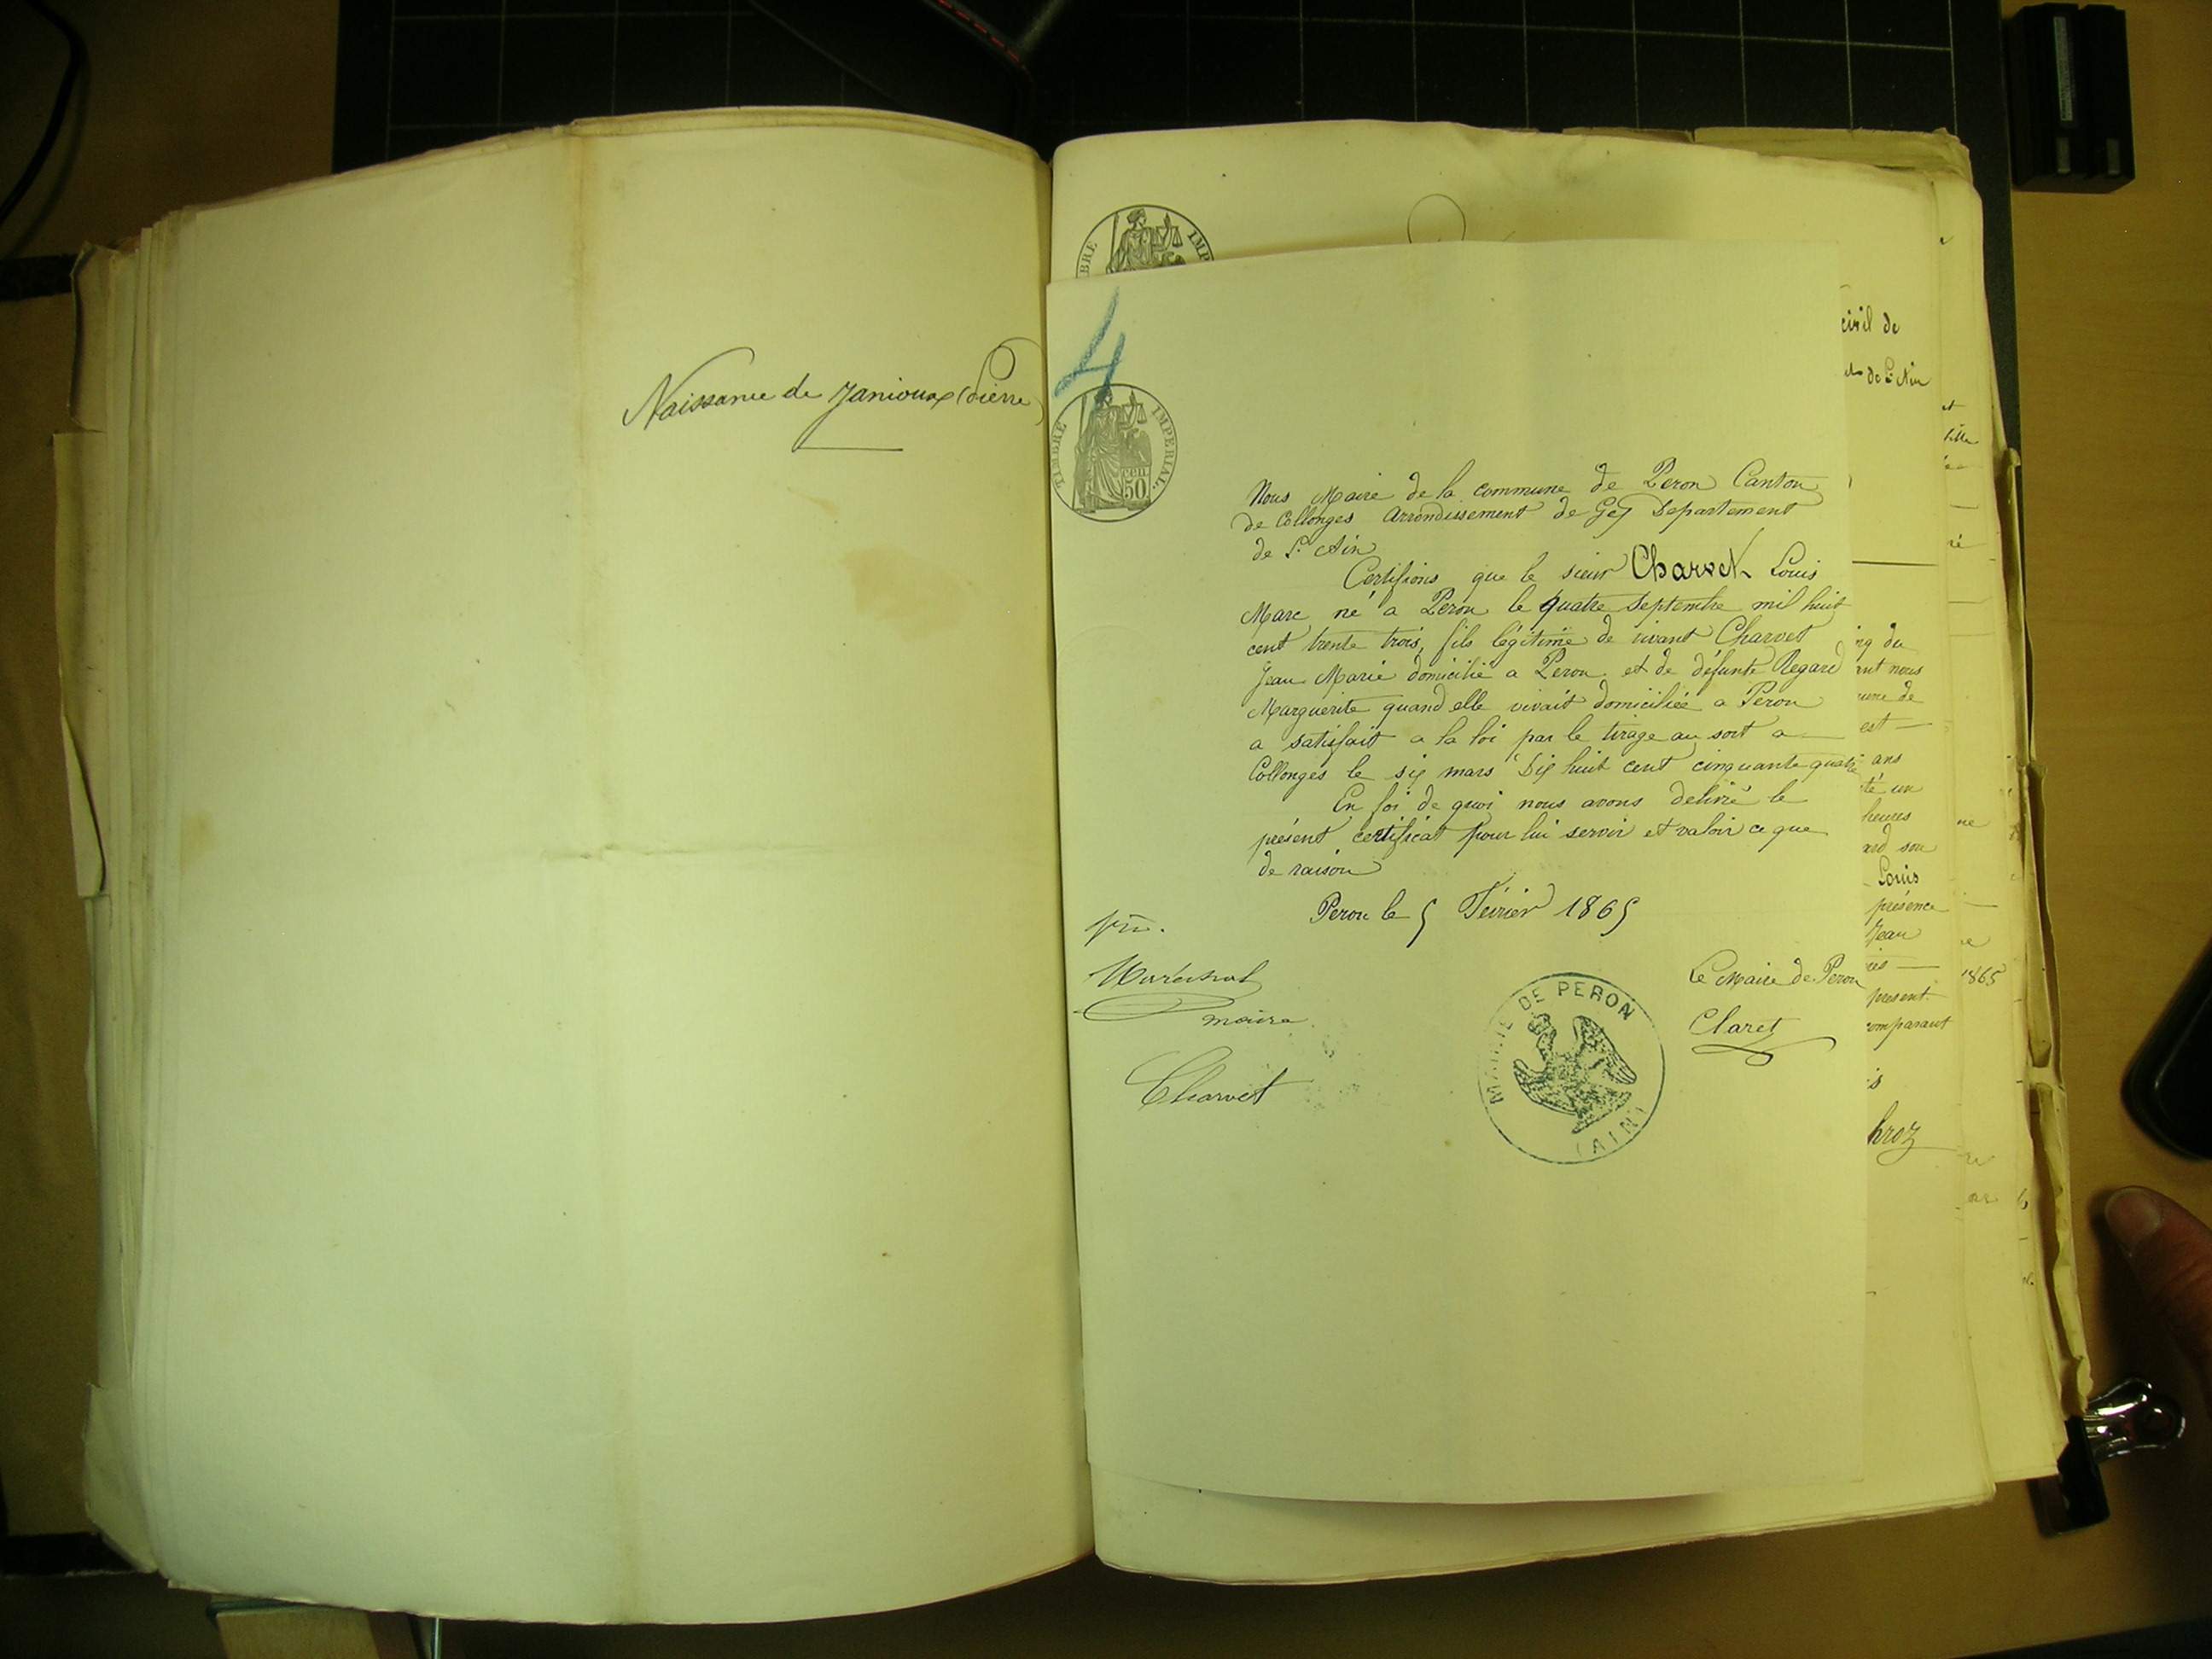 Naissance de Janioux (Pierre)
4
TIMBRE IMPERIAL.
50 cen
Nous Maire de la commune de Peron Canton
de Collonges Arrondissement de Gex Departement
de l'Ain
Certifions que le sieur Charvet Louis
Marc né a Péron le quatre Septembre mil huit
cent trente trois, fils légitime de vivant Charvet
Jean Marie domicilié a Peron et de défunte Regard
Marguerite quand elle vivait domiciliée a Péron
a satisfait a la loi par le tirage au sort a
Collonges le six mars Dix huit cent cinquante quatre
En foi de quoi nous avons delivré le
présent certificat pour lui servir et valoir ce que
de raison
Peron le 5 Février 1865
Maréchal
maire
Charvet
Le Maire de Peron
Claret
MAIRIE DE PERON
(AIN)
civil de
de l'Ain
ng du
ant nous
de
est
ans
té un
heures
son
Louis
présence
Jean
present
omparant
hroz
1865